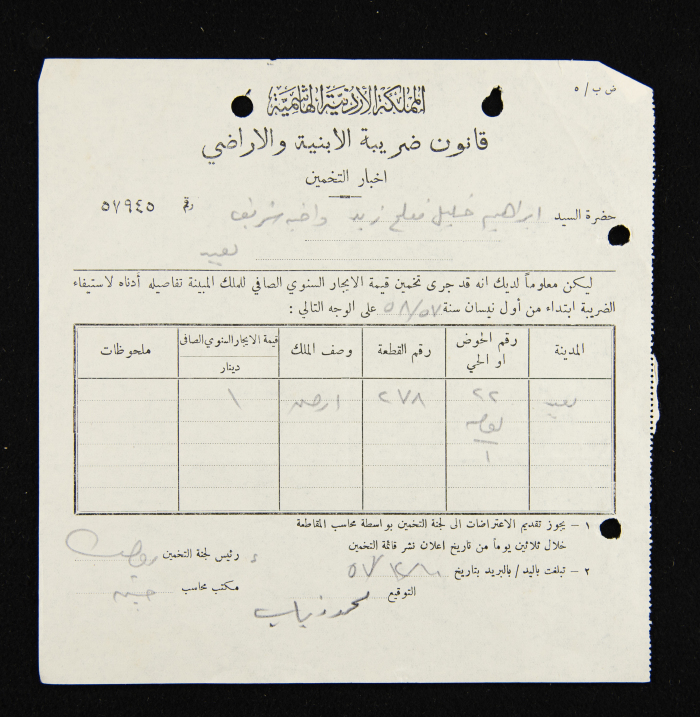 ض ب / ٥
المملكة الاردنية الهاشمية
قانون ضريبة الابنية والاراضي
اخبار التخمين
رقم ٥٧٩٤٥
حضرة السيد ابراهيم خليل مفلح زيد واخيه شريف
يعبد
ليكن معلوماً لديك انه قد جرى تخمين قيمة الايجار السنوي الصافي للملك المبينة تفاصيله أدناه لاستيفاء
الضريبة ابتداء من أول نيسان سنة ٥٨/٥٧ على الوجه التالي :
المدينة رقم الحوض او الحي رقم القطعة وصف الملك قيمة الايجار السنوي الصافى دينار ملحوظات
يعبد ٢٢ ٢٧٨ ارض ١
١
١ – يجوز تقديم الاعتراضات الى لجنة التخمين بواسطة محاسب المقاطعة
خلال ثلاثين يوماً من تاريخ اعلان نشر قائمة التخمين
رئيس لجنة التخمين
٢ – تبلغت باليد / بالبريد بتاريخ
مكتب محاسب جنين
التوقيع